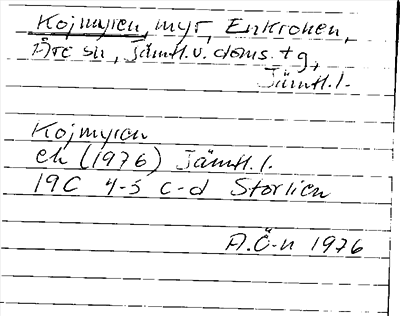 Kojmyren, myr, Enkronen,
Åre sn, Jämtl. v. doms. tg,
Jämtl. l.
Kojmyren
ek (1976) Jämtl. l.
19C 4-5 c-d Storlien
A. Ö-n 1976